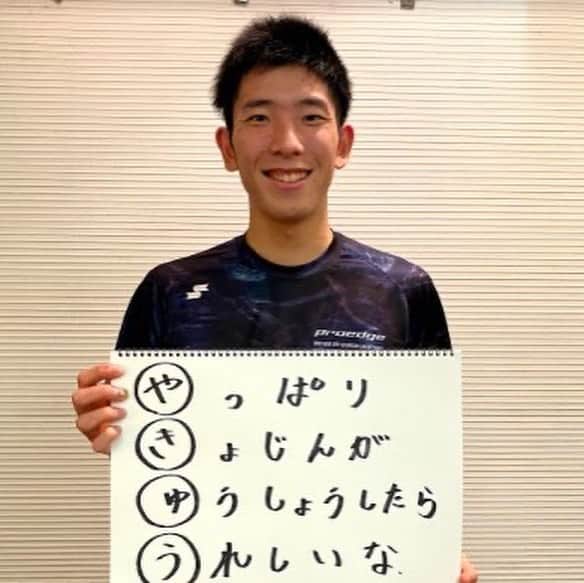 proedge
やっぱり
きょじんが
ゆうしょうしたら
うれしいな.